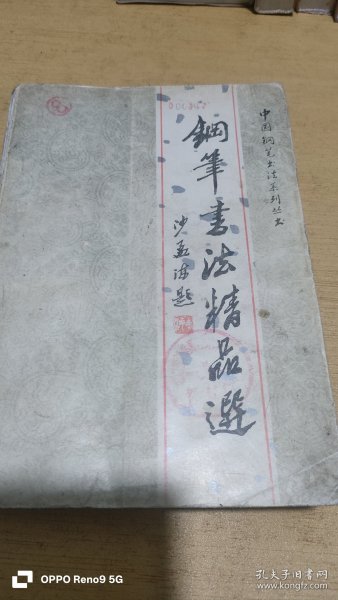 中国钢笔书法系列丛书
鋼筆書法精品選
沙孟海題
OPPO Reno9 5G
孔夫子旧书网
www.kongfz.com